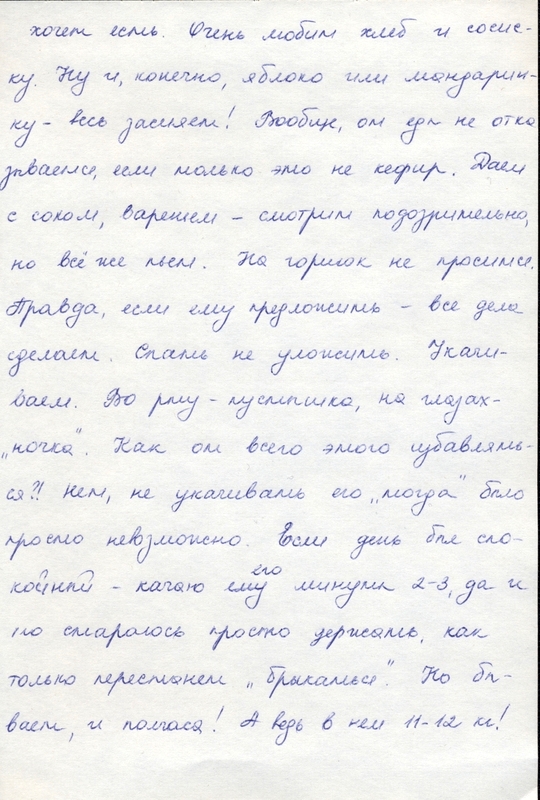 хочет есть. Очень любит хлеб и сосис-
ку. Ну и, конечно, яблоко или мандарин-
ку - весь засияет! Вообще, от еды не отка
зывается, если только это не кефир. Даем
с соком, вареньем - смотрит подозрительно,
но всё же пьет. На горшок не просится.
Правда, если ему предложить - все дела
сделает. Спать не уложить. Укачи-
ваем. Во рту - пустышка, на глазах -
"ночка". Как от всего этого избавлять-
ся?! Нет, не укачивать его "тогда" было
просто невозможно. Если день был спо-
койный - качаю ему его минуты 2-3, да и
то стараюсь просто держать, как
только перестанет "брыкаться". Но бы-
вает, и полчаса! А ведь в нем 11-12 кг!